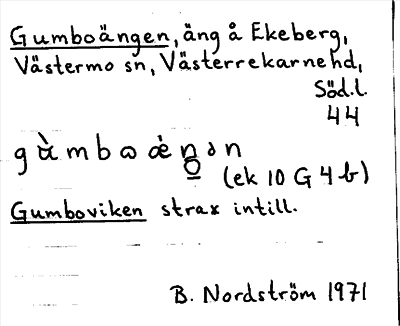 Gumboängen, äng å Ekeberg,
Västermo sn, Västerrekarne hd,
Söd.l.
44
gùmbωæ̀n̥ən
(ek 10 G 4 b)
Gumboviken strax intill.
B. Nordström 1971